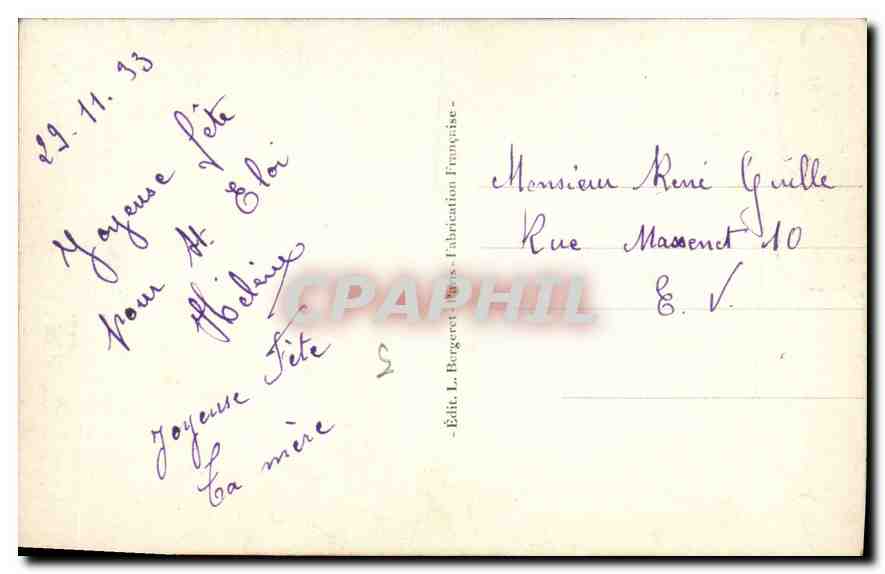 29.11.33
Joyeuse fête
pour St. Eloi
Hélène
Joyeuse Fête
Ta mère
- Édit. L. Bergeret - Paris - Fabrication Française -
Monsieur René Guille
Rue Massenet 10
E. V.
CPAPHIL